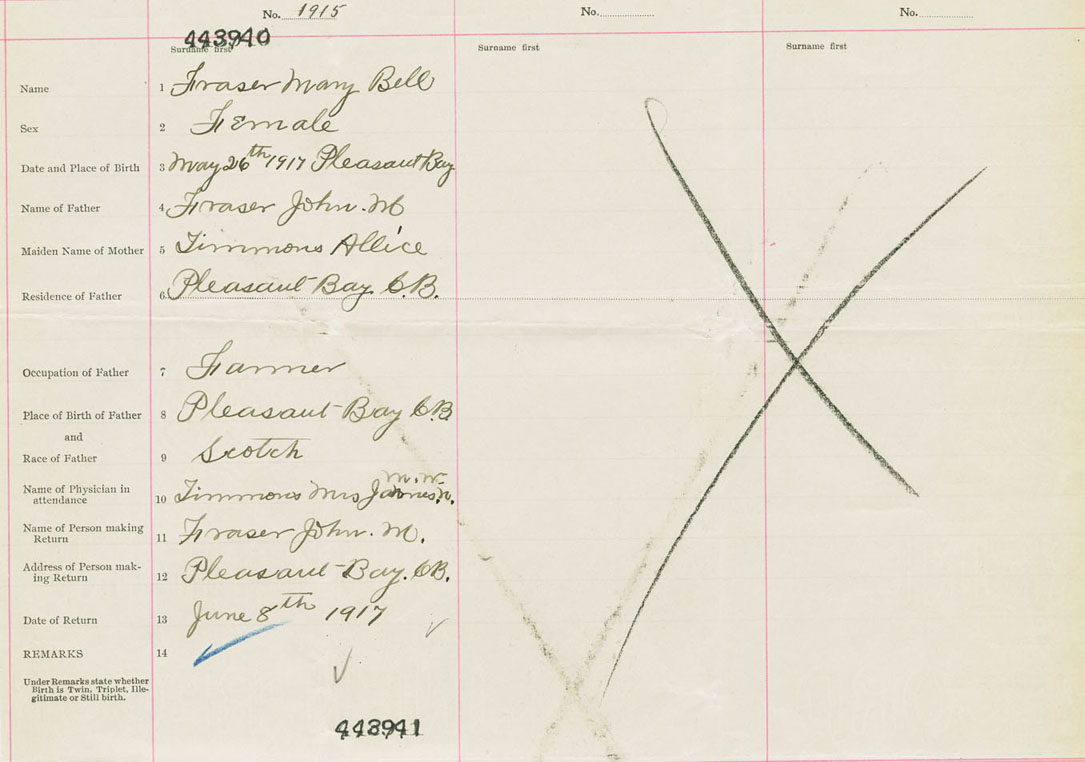 No. 1915
No.
No.
443940
Surname first
Surname first
Surname first
Name 1 Fraser Mary Bell
Sex 2 Female
Date and Place of Birth 3 May 26th 1917 Pleasant Bay
Name of Father 4 Fraser John. M
Maiden Name of Mother 5 Timmons Allice
Residence of Father 6 Pleasant Bay. C.B.
Occupation of Father 7 Farmer
Place of Birth of Father 8 Pleasant Bay C.B.
and
Race of Father 9 Scotch
M. W.
Name of Physician in
attendance 10 Timmons Mrs James
Name of Person making
Return 11 Fraser John. M.
Address of Person mak-
ing Return 12 Pleasant Bay. C.B.
Date of Return 13 June 8th 1917
REMARKS 14
Under Remarks state whether
Birth is Twin, Triplet, Ille-
gitimate or Still birth.
443941